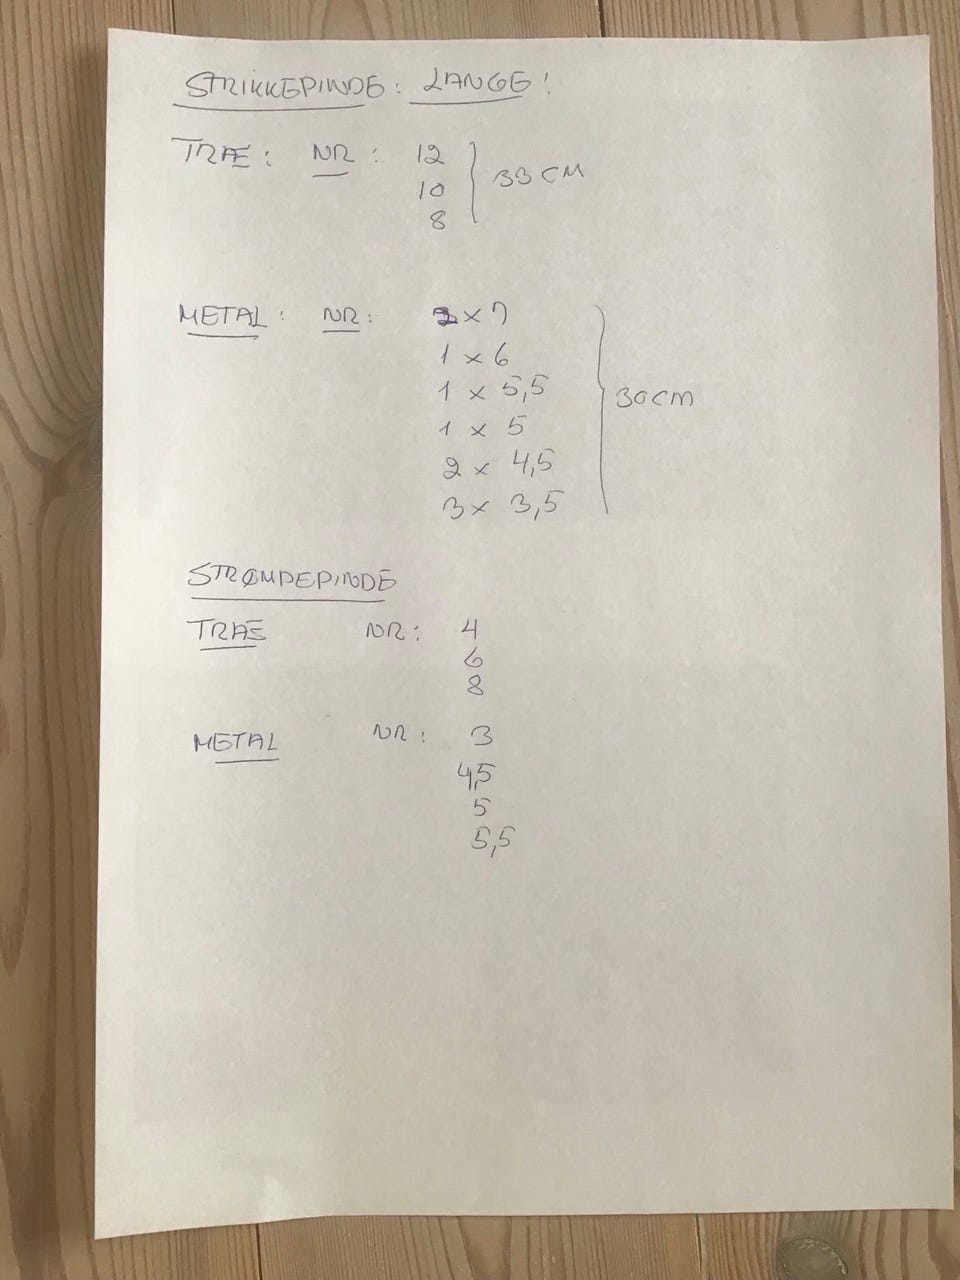 STRIKKEPINDE: LANGE!
TRÆ: NR: 12
10
8
33 CM
METAL: NR: 2 x 7
1 x 6
1 x 5,5
1 x 5
2 x 4,5
3 x 3,5
30 CM
STRØMPEPINDE
TRÆ NR: 4
6
8
METAL NR: 3
4,5
5
5,5